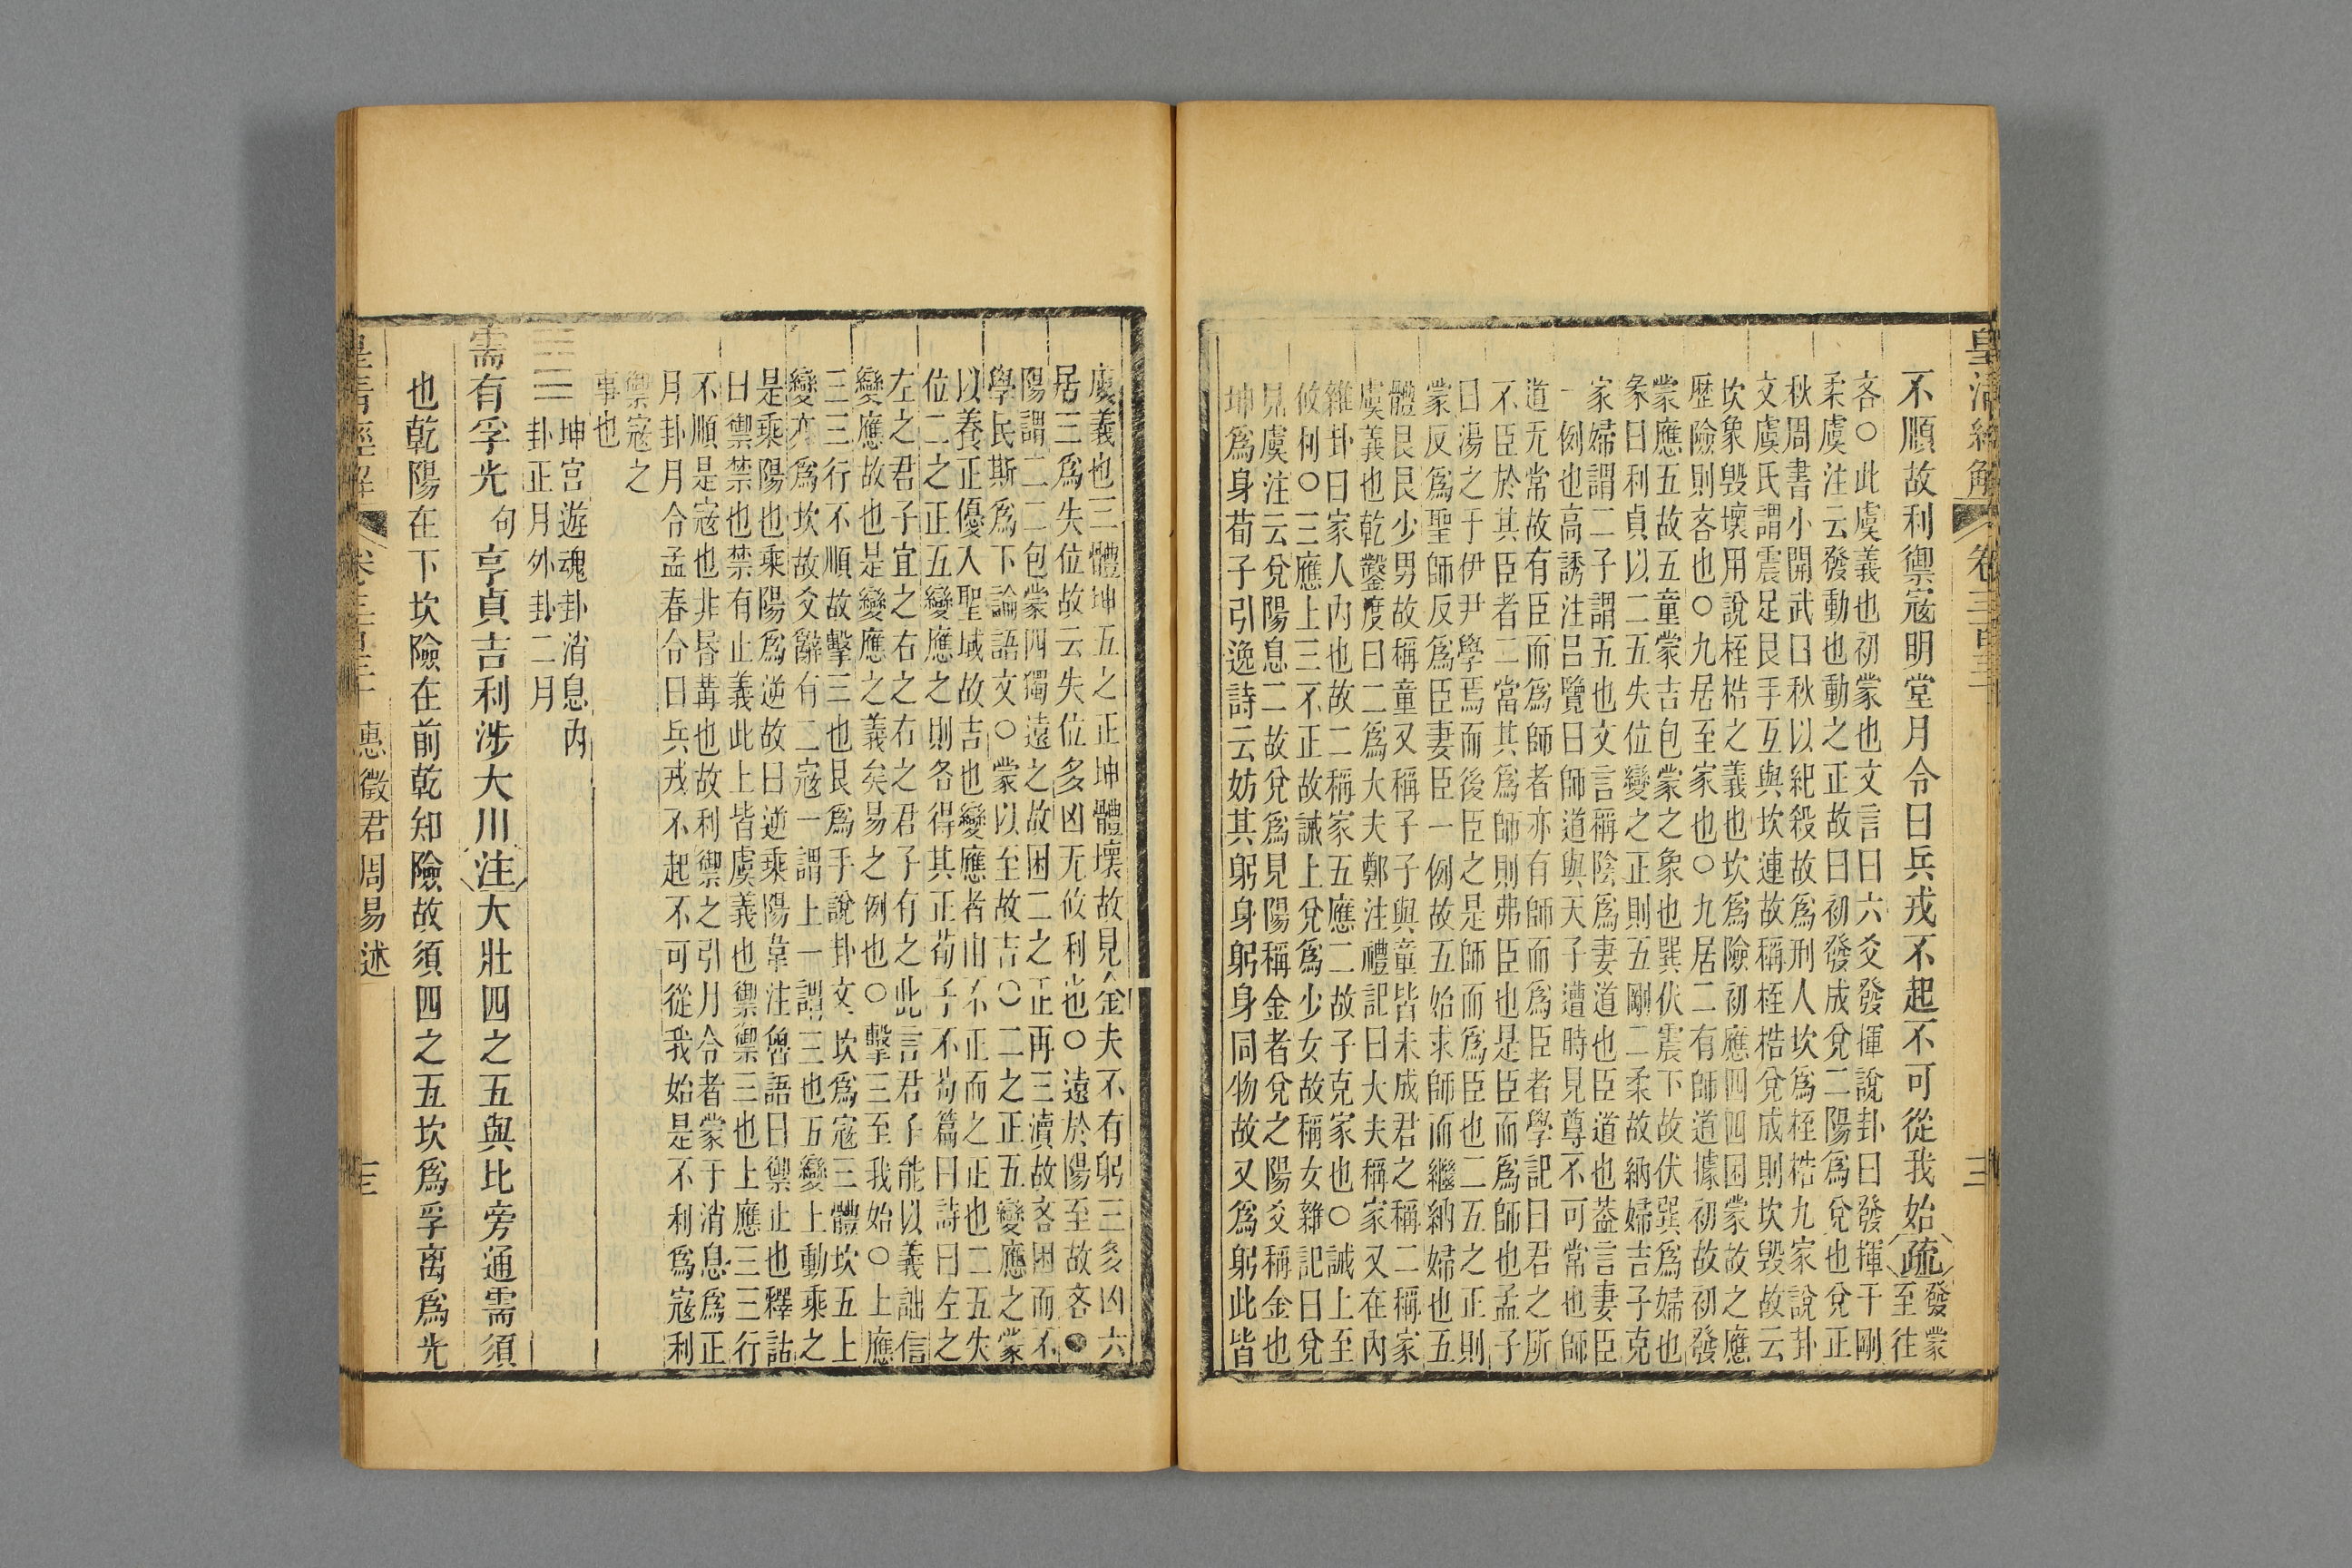 皇清經解 卷三百三十 三
不順故利禦寇明堂月令曰兵戎不起不可從我始疏發蒙
至往
吝○此虞義也初蒙也文言曰六爻發揮說卦曰發揮于剛
柔虞注云發動也動之正故曰初發成兌二陽爲兌也兌正
秋周書小開武曰秋以紀殺故爲刑人坎爲桎梏九家說卦
文虞氏謂震足艮手互與坎連故稱桎梏兌成則坎毁故云
坎象毁壞用說桎梏之義也坎爲險初應四四困蒙故之應
歴險則吝也○九居至家也○九居二有師道據初故初發
蒙應五故五童蒙吉包蒙之象也巽伏震下故伏巽爲婦也
彖曰利貞以二五失位變之正則五剛二柔故納婦吉子克
家婦謂二子謂五也文言稱陰爲妻道也臣道也葢言妻臣
一例也高誘注呂覽曰師道與天子遭時見尊不可常也師
道无常故有臣而爲師者亦有師而爲臣者學記曰君之所
不臣於其臣者二當其爲師則弗臣也是臣而爲師也孟子
曰湯之于伊尹學焉而後臣之是師而爲臣也二五之正則
蒙反爲聖師反爲臣妻臣一例故五始求師而繼納婦也五
體艮艮少男故稱童又稱子子與童皆未成君之稱二稱家
虞義也乾鑿度曰二爲大夫鄭注禮記曰大夫稱家又在內
雜卦曰家人內也故二稱家五應二故子克家也○誡上至
攸利○三應上三不正故誡上兌爲少女故稱女雜記曰兌
見虞注云兌陽息二故兌爲見陽稱金者兌之陽爻稱金也
坤爲身荀子引逸詩云妨其躬身躬身同物故又爲躬此皆
虞義也三體坤五之正坤體壞故見金夫不有躬三多凶六
居三爲失位故云失位多凶无攸利也○遠於陽至故吝●
陽謂二二包蒙四獨遠之故困二之正再三瀆故吝困而不
學民斯爲下論語文○蒙以至故吉○二之正五變應之蒙
以養正優入聖域故吉也變應者由不正而之正也二五失
位二之正五變應之則各得其正荀子不苟篇曰詩曰左之
左之君子宜之右之右之君子有之此言君子能以義詘信
變應故也是變應之義矣易之例也○擊三至我始○上應
三三行不順故擊三也艮爲手說卦文坎爲寇三體坎五上
變亦爲坎故爻辭有二寇一謂上一謂三也五變上動乘之
是乘陽也乘陽爲逆故曰逆乘陽韋注魯語曰禦止也釋詁
曰禦禁也禁有止義此上皆虞義也禦禦三也上應三三行
不順是寇也非昬冓也故利禦之引月令者蒙于消息爲正
月卦月令孟春令曰兵戎不起不可從我始是不利爲寇利
禦寇之
事也
坤宮遊魂卦消息內
卦正月外卦二月
需有孚光句亨貞吉利涉大川注大壯四之五與比旁通需須
也乾陽在下坎險在前乾知險故須四之五坎爲孚离爲光
皇清經解 卷三百三十 惠徵君周易述 三